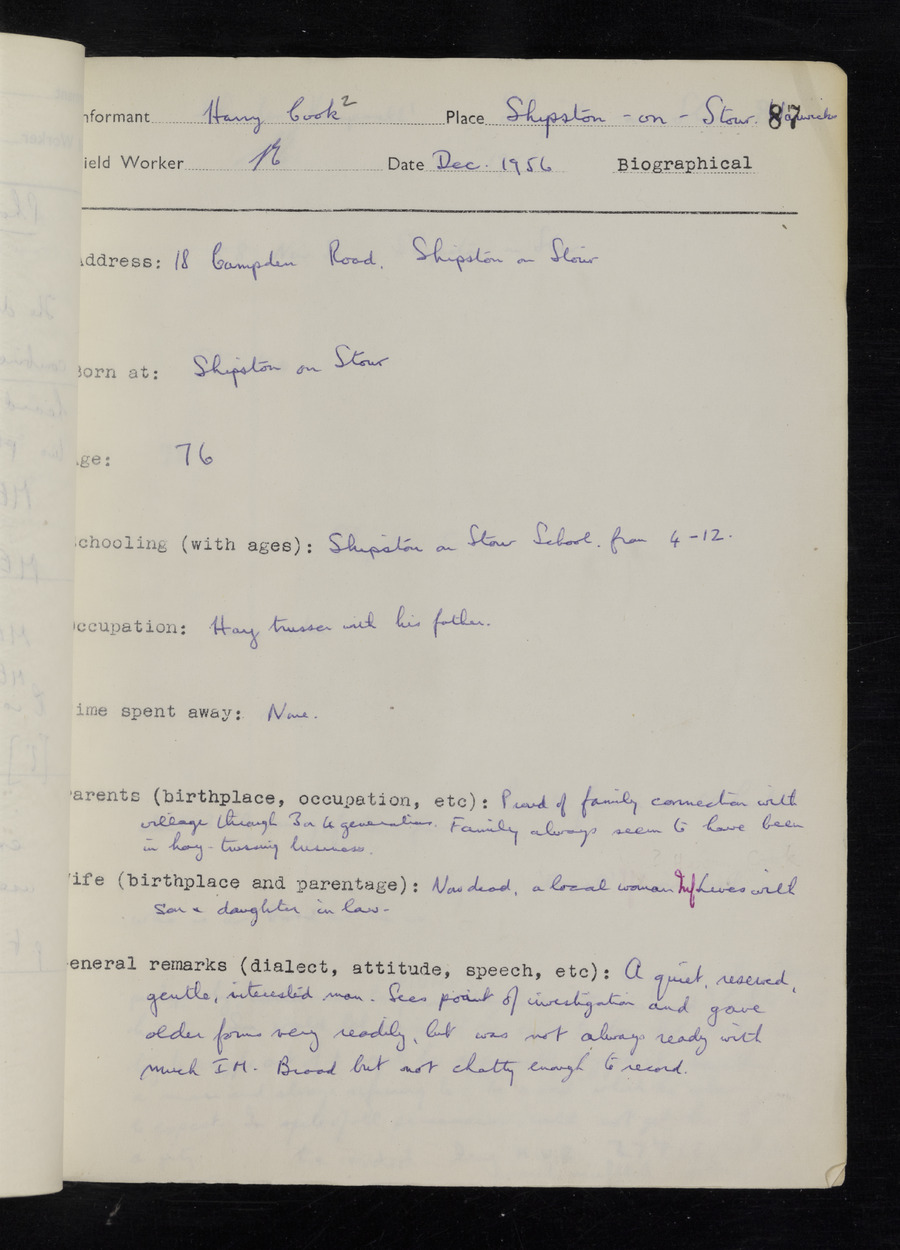 nformant Harry Cook 2 Place Shipston - on - Stour. Warwicks 87
ield Worker Date Dec. 1956 Biographical
ddress: 18 Campden Road, Shipston on Stour
Born at: Shipston on Stour
ge: 76
chooling (with ages): Shipston on Stour School. from 4-12.
ccupation: Hay trusser with his father.
ime spent away: None.
arents (birthplace, occupation, etc): Proud of family connection with
village through 3 or 4 generations. Family always seem to have been
in hay-trussing business.
ife (birthplace and parentage): Now dead, a local woman Inf Lives with
son & daughter in law-
eneral remarks (dialect, attitude, speech, etc): A quiet, reserved,
gentle, interested man. Sees point of investigation and gave
older forms very readily, but was not always ready with
much I M. Broad but not chatty enough to record.